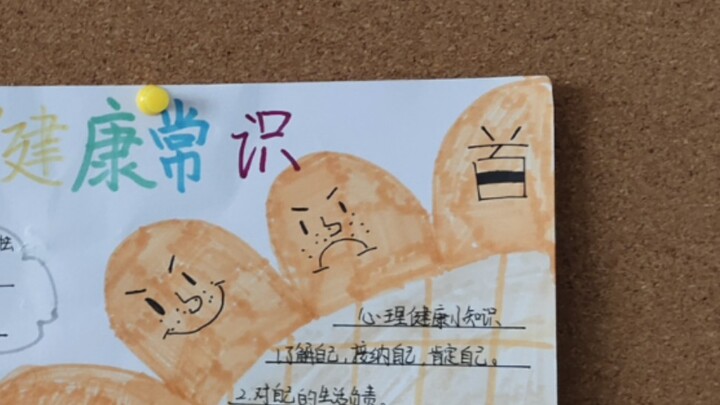 健康常识
心理健康小知识
1.了解自己，接纳自己，肯定自己。
2.对自己的生活负责。